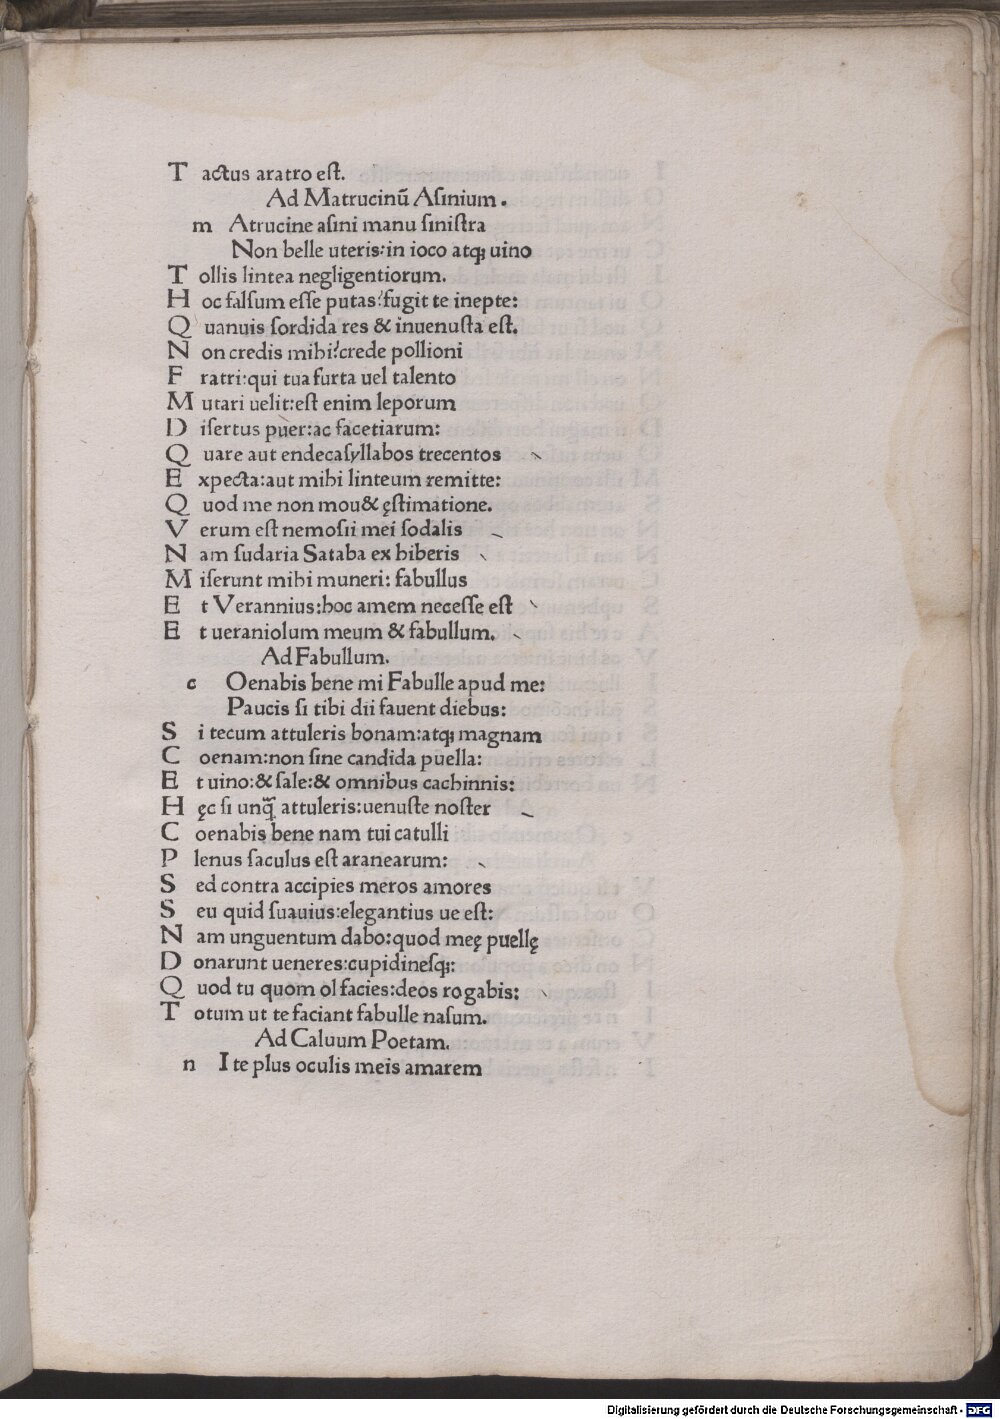 T actus aratro eſt.
Ad Matrucinū Aſinium.
m Atrucine aſini manu ſiniſtra
Non belle uteris: in ioco atqꝫ uino
T ollis lintea negligentiorum.
H oc falſum eſſe putas? fugit te inepte:
Q uanuis ſordida res & inuenuſta eſt.
N on credis mihi? crede pollioni
F ratri: qui tua furta uel talento
M utari uelit: eſt enim leporum
D iſertus puer: ac facetiarum:
Q uare aut endecaſyllabos trecentos
E xpecta: aut mihi linteum remitte:
Q uod me non mou& ęſtimatione.
V erum eſt nemoſii mei ſodalis
N am ſudaria Sataba ex hiberis
M iſerunt mihi muneri: fabullus
E t Verannius: hoc amem neceſſe eſt
E t ueraniolum meum & fabullum.
Ad Fabullum.
c Oenabis bene mi Fabulle apud me:
Paucis ſi tibi dii fauent diebus:
S i tecum attuleris bonam: atqꝫ magnam
C oenam: non ſine candida puella:
E t uino: & ſale: & omnibus cachinnis:
H ęc ſi unq̄ attuleris: uenuſte noſter
C oenabis bene nam tui catulli
P lenus ſaculus eſt aranearum:
S ed contra accipies meros amores
S eu quid ſuauius: elegantius ue eſt:
N am unguentum dabo: quod meę puellę
D onarunt ueneres: cupidineſqꝫ:
Q uod tu quom ol facies: deos rogabis:
T otum ut te faciant fabulle naſum.
Ad Caluum Poetam.
n I te plus oculis meis amarem
Digitalisierung gefördert durch die Deutsche Forschungsgemeinschaft - DFG